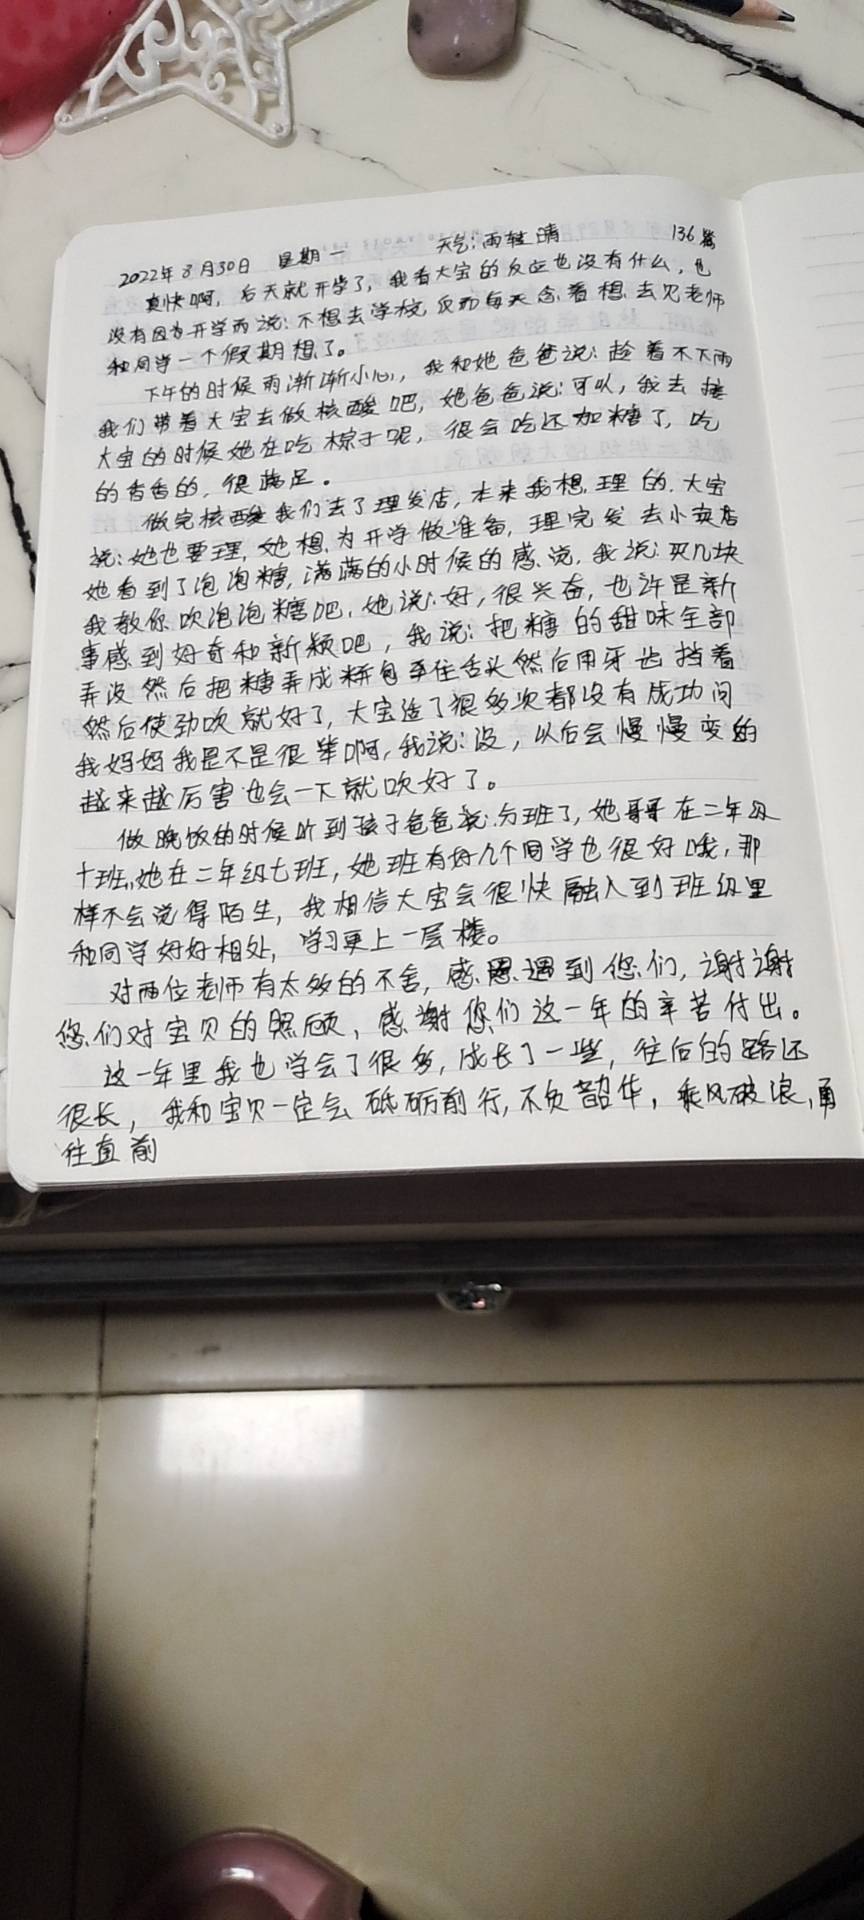 2022年8月30日 星期一 天气:雨转晴 136篇
真快啊,后天就开学了,我看大宝的反应也没有什么,也
没有因为开学而说:不想去学校,反而每天念着想去见老师
和同学一个假期想了。
下午的时候雨渐渐小心,我和她爸爸说:趁着不下雨
我们带着大宝去做核酸吧,她爸爸说:可以,我去接
大宝的时候她在吃粽子呢,很会吃还加糖了,吃
的香香的,很满足。
做完核酸我们去了理发店,本来我想理的,大宝
说:她也要理,她想为开学做准备,理完发去小卖店
她看到了泡泡糖,满满的小时候的感觉,我说:买几块
我教你吹泡泡糖吧,她说:好,很兴奋,也许是新
事感到好奇和新颖吧,我说:把糖的甜味全部
弄没然后把糖弄成饼包住舌头然后用牙齿挡着
然后使劲吹就好了,大宝造了很多次都没有成功问
我妈妈我是不是很笨啊,我说:没,以后会慢慢变的
越来越厉害也会一下就吹好了。
做晚饭的时候听到孩子爸爸说:分班了,她哥哥在二年级
十班,她在二年级七班,她班有好几个同学也很好哦,那
样不会觉得陌生,我相信大宝会很快融入到班级里
和同学好好相处,学习更上一层楼。
对两位老师有太多的不舍,感恩遇到您们,谢谢
您们对宝贝的照顾,感谢您们这一年的辛苦付出。
这一年里我也学会了很多,成长了一些,往后的路还
很长,我和宝贝一定会砥砺前行,不负韶华,乘风破浪,勇
往直前